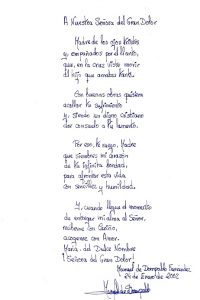 A Nuestra Señora del Gran Dolor
Madre de los ojos
y empañados por el llanto,
que, en la cruz viste morir
al Hijo que amabas tanto.
Con buenas obras quisiera
acallar tu sufrimiento
y, siendo un digno cristiano
dar consuelo a tu lamento.
Por eso, te ruego, Madre
que siembres mi corazón
de tu infinita bondad,
para afrontar esta vida
con sencillez y humildad.
Y, cuando llegue el momento
de entregar mi alma al Señor,
recíbeme con Cariño,
acógeme con Amor.
María, del Dulce Nombre
¡Señora del Gran Dolor!
Manuel de Fernández
24 de Enero de 2002